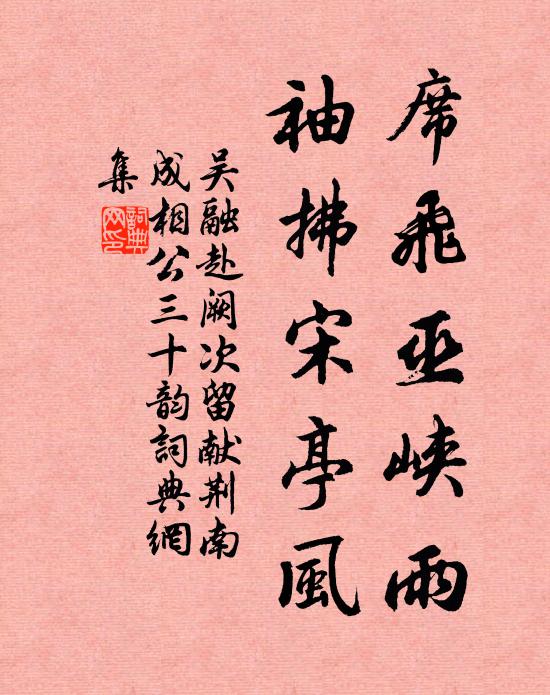 席飛巫峽雨
袖拂宋亭風
吴融赴阙次留献荆南
成相公三十韵詞典網
集
詞典網印